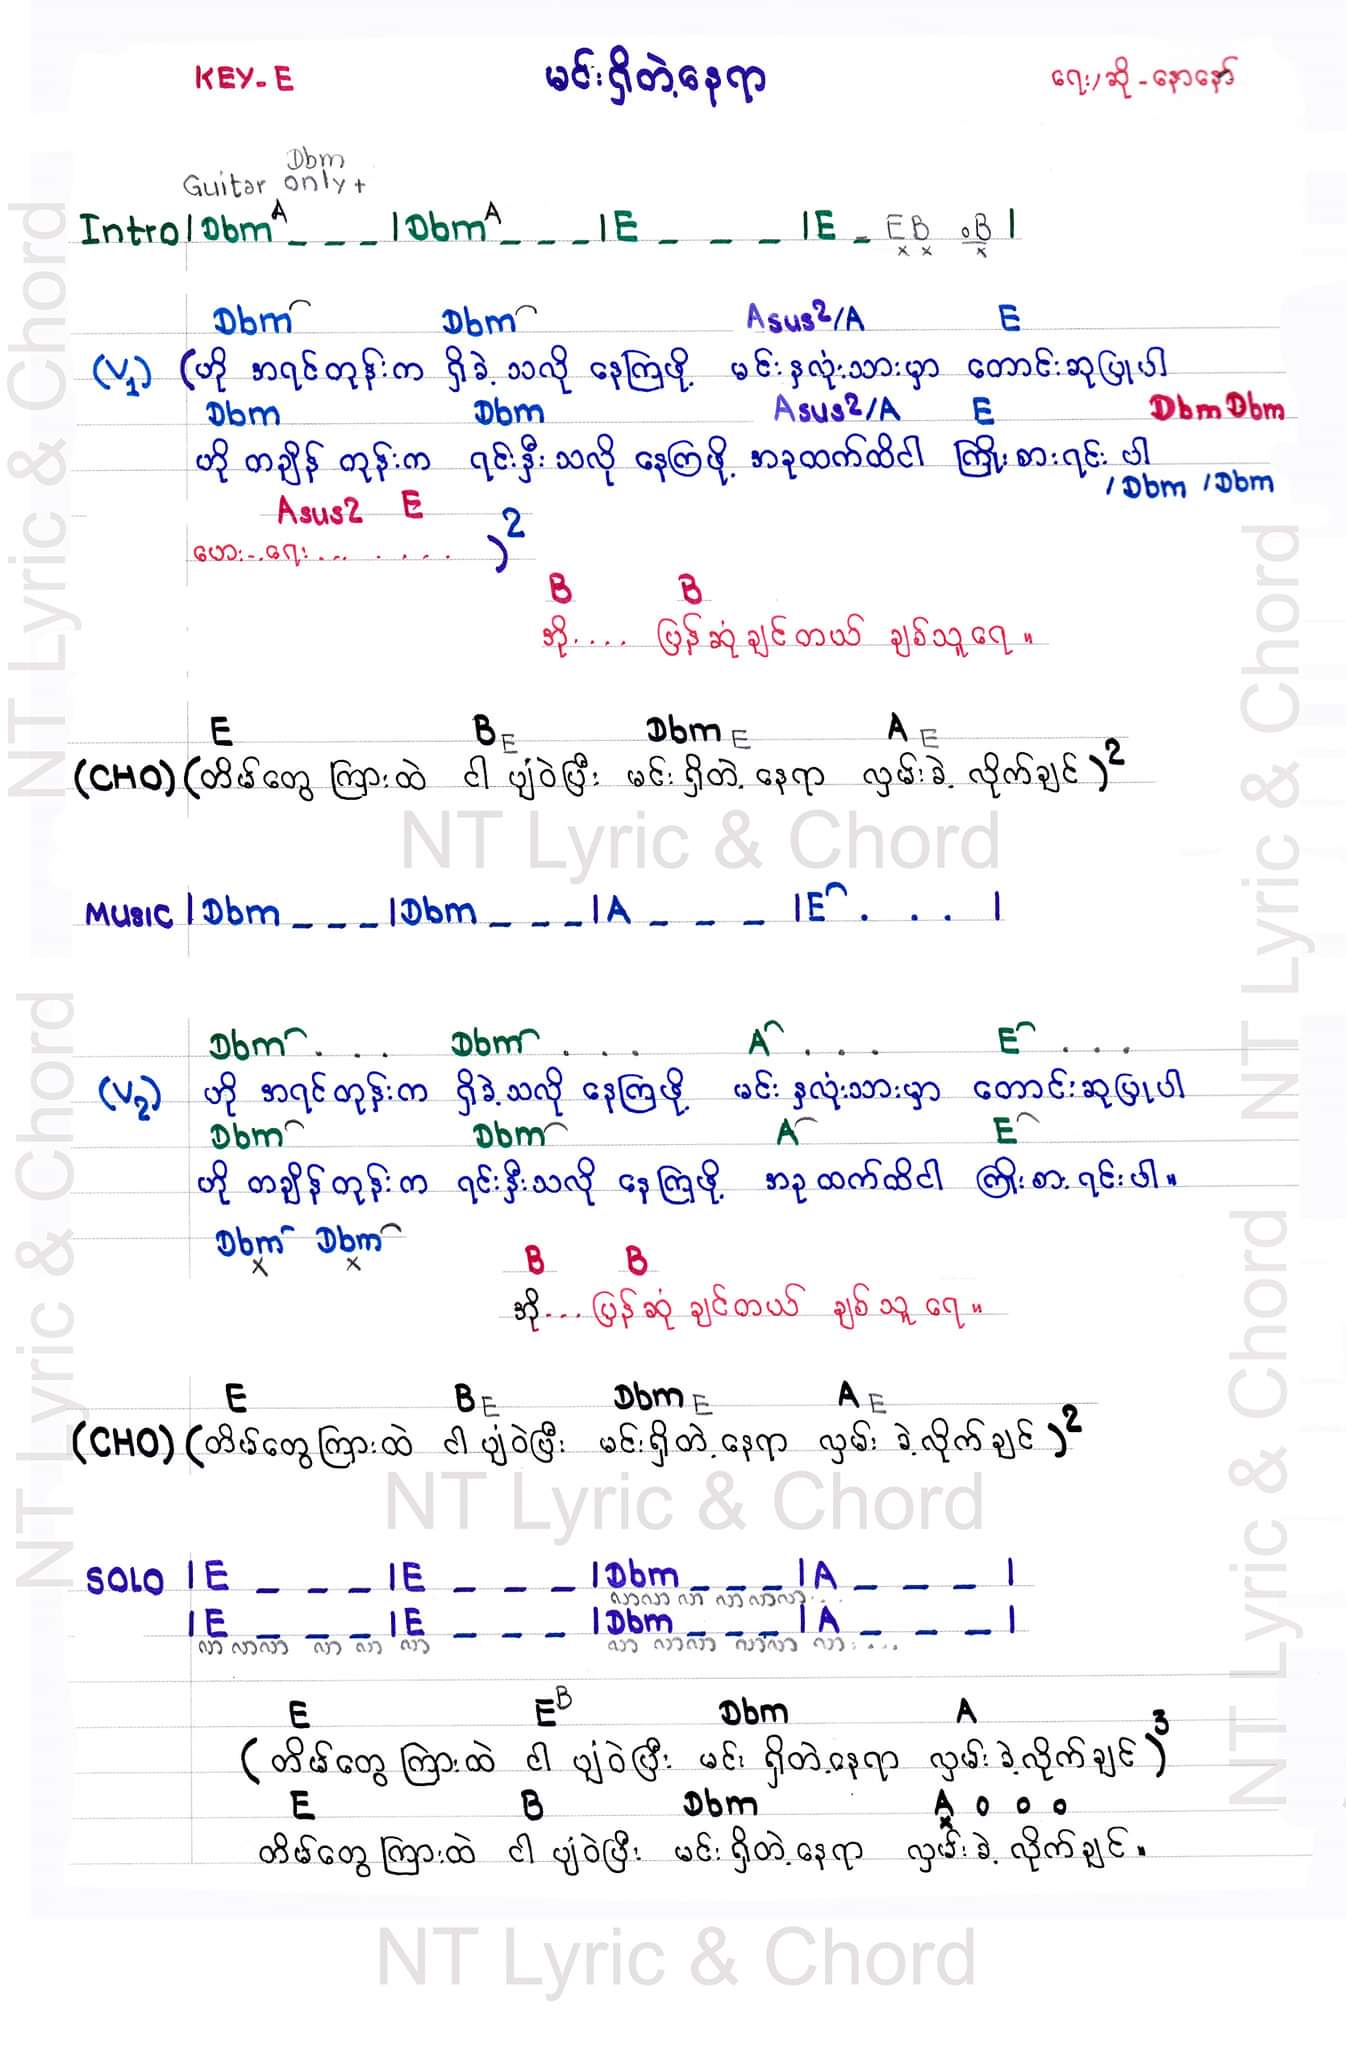 KEY-E မင်းရှိတဲ့နေရာ ရေး/ဆို-နောနော်
Dbm
Guitar only +
Intro |Dbm A _ _ _ |Dbm A _ _ _ |E _ _ _ |E _ E B . B |
x x x
Dbm Dbm Asus2/A E
(V1) (ဟို အရင်တုန်းက ရှိခဲ့သလို နေကြဖို့ မင်းနှလုံးသားမှာ တောင်းဆုပြုပါ
Dbm Dbm Asus2/A E Dbm Dbm
ဟို တချိန်တုန်းက ရင်းနှီးသလို နေကြဖို့ အခုထက်ထိငါ ကြိုးစားရင်းပါ
/Dbm /Dbm
Asus2 E
ဟေး...ရေး... . . . . )2
B B
အို.... ပြန်ဆုံချင်တယ် ချစ်သူရေ။
E B E Dbm E A E
(CHO) (တိမ်တွေကြားထဲ ငါပျံဝဲပြီး မင်းရှိတဲ့နေရာ လှမ်းခဲ့လိုက်ချင်)2
NT Lyric & Chord
MUSIC |Dbm _ _ _ |Dbm _ _ _ |A _ _ _ |E . . . |
Dbm . . . Dbm . . . A . . . E . . .
(V2) ဟို အရင်တုန်းက ရှိခဲ့သလို နေကြဖို့ မင်းနှလုံးသားမှာ တောင်းဆုပြုပါ
Dbm Dbm A E
ဟို တချိန်တုန်းက ရင်းနှီးသလို နေကြဖို့ အခုထက်ထိငါ ကြိုးစားရင်းပါ။
Dbm Dbm
x x
B B
အို... ပြန်ဆုံချင်တယ် ချစ်သူရေ။
E B E Dbm E A E
(CHO) (တိမ်တွေကြားထဲ ငါပျံဝဲပြီး မင်းရှိတဲ့နေရာ လှမ်းခဲ့လိုက်ချင်)2
NT Lyric & Chord
SOLO |E _ _ _ |E _ _ _ |Dbm _ _ _ |A _ _ _ |
လာလာ လာ လာလာလာ...
|E _ _ _ |E _ _ _ |Dbm _ _ _ |A _ _ _ |
လာ လာလာ လာ လာ လာ လာ လာလာ လာလာ လာ....
E E B Dbm A
(တိမ်တွေကြားထဲ ငါပျံဝဲပြီး မင်းရှိတဲ့နေရာ လှမ်းခဲ့လိုက်ချင်)3
E B Dbm A o o o
x
တိမ်တွေကြားထဲ ငါပျံဝဲပြီး မင်းရှိတဲ့နေရာ လှမ်းခဲ့လိုက်ချင်။
NT Lyric & Chord
NT Lyric & Chord
NT Lyric & Chord
NT Lyric & Chord
NT Lyric & Chord